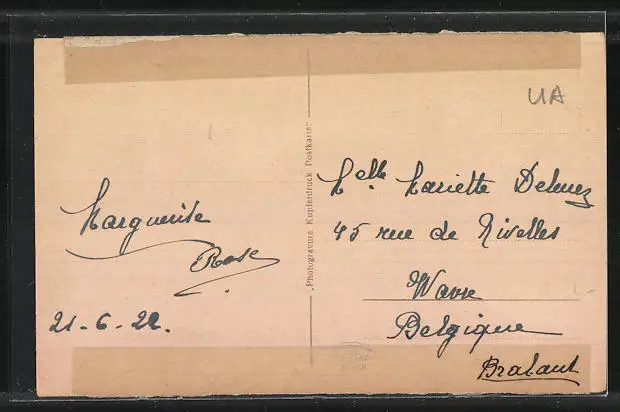 UA
Marguerite
Rose
21-6-22.
"Photogravure Kupferdruck Postkarte"
Melle Mariette
45 rue de Nivelles
Wavre
Belgique
Brabant